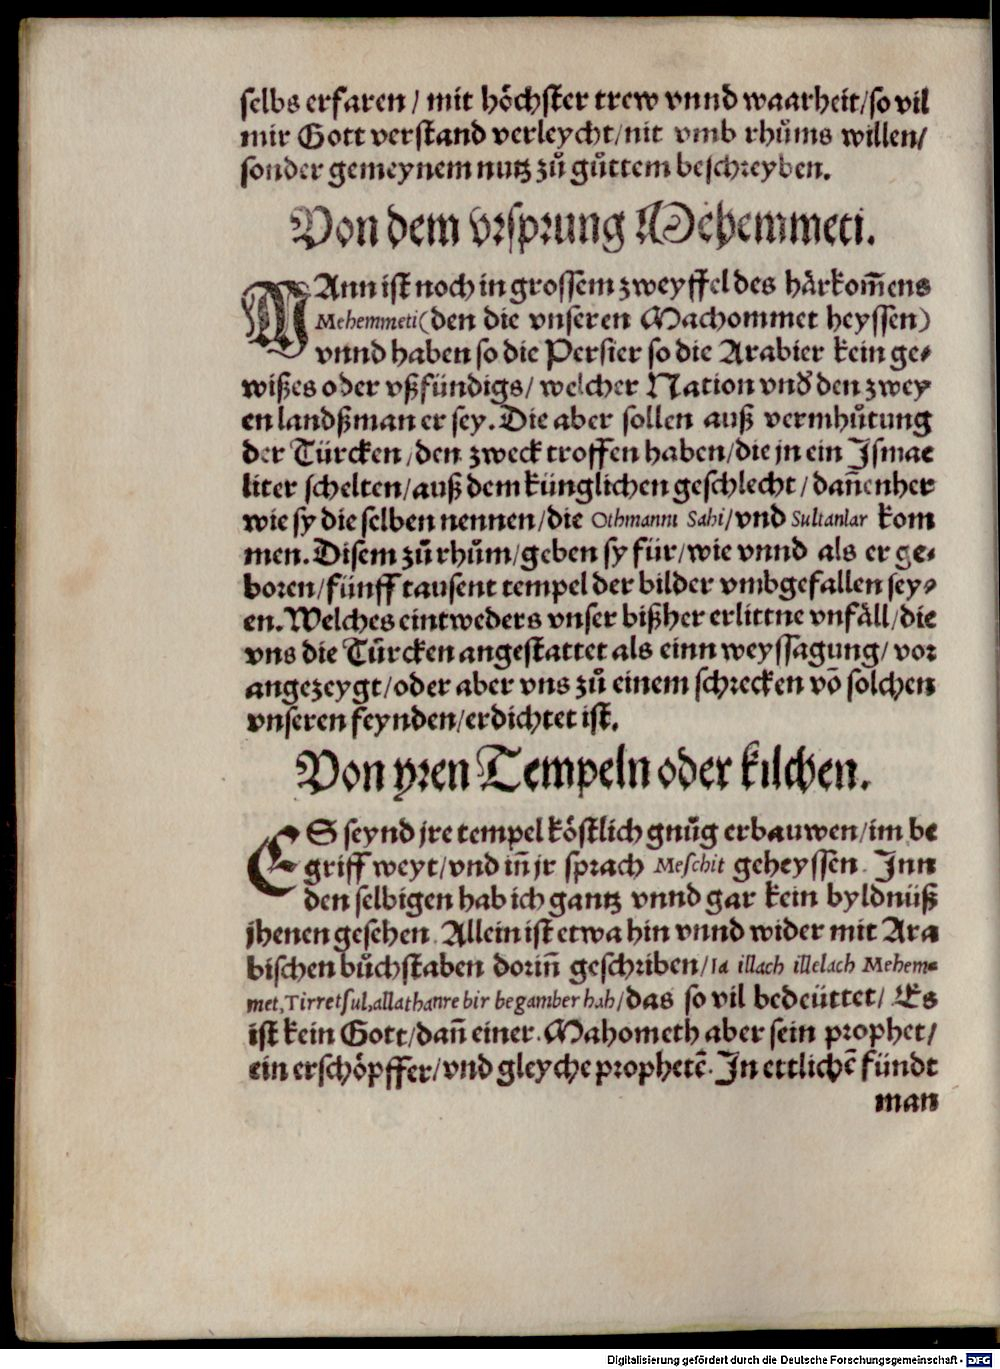 selbs erfaren / mit hoͤchster trew vnnd waarheit/so vil
mir Gott verstand verleycht/nit vmb rhuͦms willen/
sonder gemeynem nutz zuͦ guͦttem beschreyben.
Von dem vrsprung Mehemmeti.
MAnn ist noch in grossem zweyffel des haͤrkom̃ens
Mehemmeti(den die vnseren Machommet heyssen)
vnnd haben so die Persier so die Arabier kein ge⸗
wißes oder vßfündigs/ welcher Nation vnd̕ den zwey
en landßman er sey. Die aber sollen auß vermhuͤtung
der Türcken/den zweck troffen haben/die jn ein Ismae
liter schelten/auß dem künglichen geschlecht/dan̄enher
wie sy die selben nennen/die Othmanni Sahi/vnd Sultanlar kom
men. Disem zuͦ rhuͦm/geben sy für/wie vnnd als er ge⸗
boren/fünff tausent tempel der bilder vmbgefallen sey⸗
en. Welches eintweders vnser bißher erlittne vnfaͤll/die
vns die Türcken angestattet als einn weyssagung/ vor
angezeygt/oder aber vns zuͦ einem schrecken võ solchen
vnseren feynden/erdichtet ist.
Von yren Tempeln oder kilchen.
ES seynd jre tempel koͤstlich gnuͦg erbauwen/im be
griff weyt/vnd in̄ jr sprach Meschit geheyssen. Inn
den selbigen hab ich gantz vnnd gar kein byldnüß
jhenen gesehen. Allein ist etwa hin vnnd wider mit Ara
bischen buͦchstaben dorin̄ geschriben/Ia illach illelach Mehem⸗
met, Tirretsul, allathanre bir begamber hah/das so vil bedeüttet/ Es
ist kein Gott/dan̄ einer. Mahometh aber sein prophet/
ein erschoͤpffer/vnd gleyche prophetẽ. In ettlichẽ fündt
man
Digitalisierung gefördert durch die Deutsche Forschungsgemeinschaft - DFG